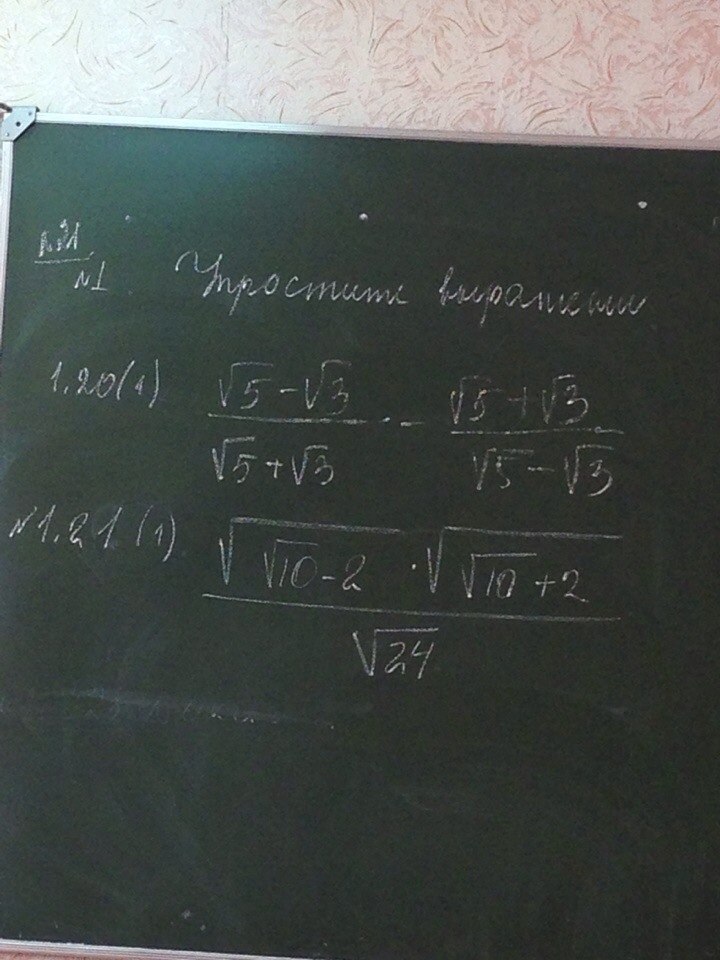 №1. Упростите выражения
1.20(1) (√5-√3)/(√5+√3) - (√5+√3)/(√5-√3)
№1.21(1) (√(√10-2) · √(√10+2))/√24